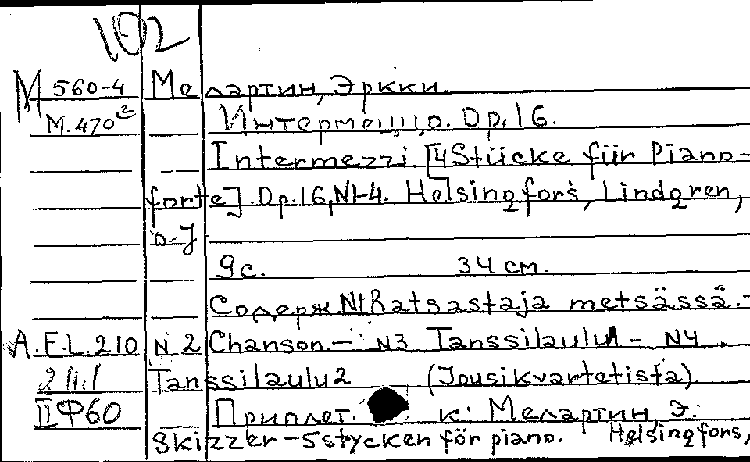 102
М 560-4 Мелартин, Эркки.
М.470² Интермеццо. Op.16.
Intermezzi [4 Stücke für Piano-
forte]. Op.16, N1-4. Helsingfors, Lindgren,
o.J
9с. 34 см.
Содерж N1 Ratsastaja metsässä.-
A.E.L.210 N.2 Chanson.- N3 Tanssilaulu1 - N4.
Tanssilaulu2 (Jousikvartetista)
IIФ60 Приплет. к: Мелартин, Э.
Skizzer - 5 stycken för piano. Helsingfors,